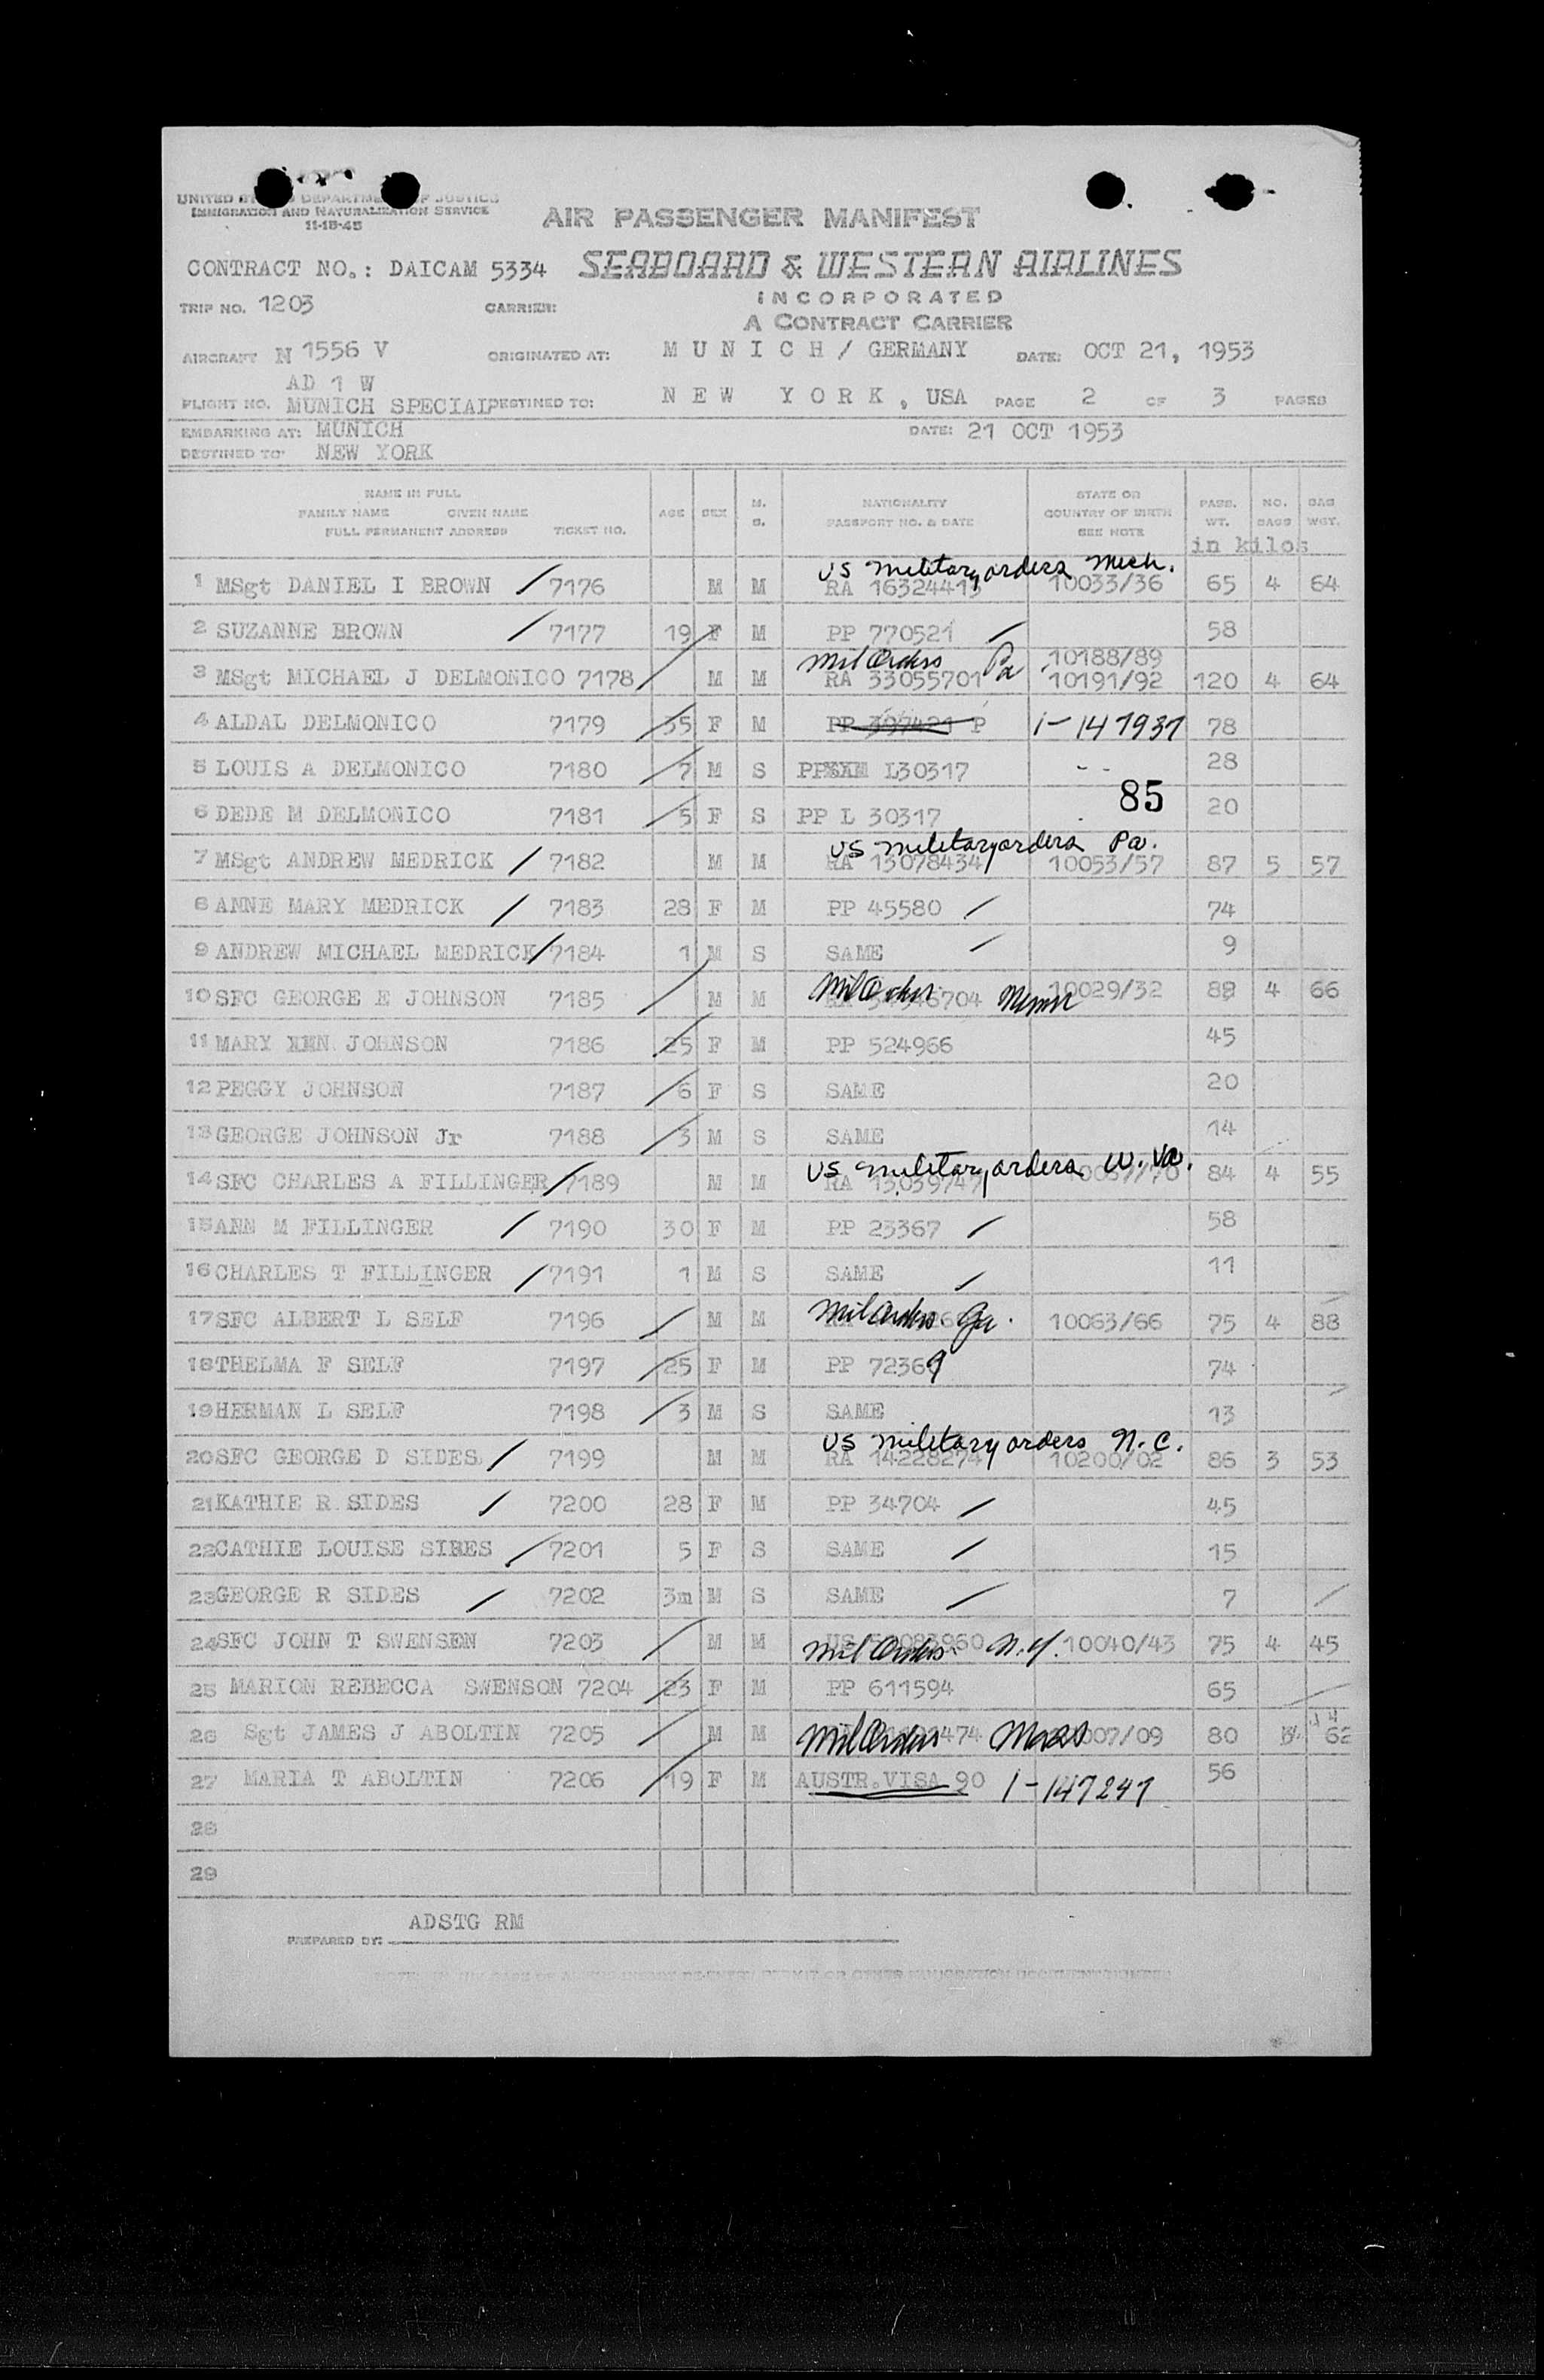 UNITED DEPARTMENT OF JUSTICE
IMMIGRATION AND NATURALIZATION SERVICE
11-18-45
AIR PASSENGER MANIFEST
CONTRACT NO.: DAICAM 5334 SEABOARD & WESTERN AIRLINES
INCORPORATED
TRIP NO. 1203 CARRIER:
A CONTRACT CARRIER
AIRCRAFT N 1556 V ORIGINATED AT: MUNICH / GERMANY DATE: OCT 21, 1953
AD 1 W
FLIGHT NO. MUNICH SPECIAL DESTINED TO: NEW YORK, USA PAGE 2 OF 3 PAGES
EMBARKING AT: MUNICH DATE: 21 OCT 1953
DESTINED TO: NEW YORK
NAME IN FULL
FAMILY NAME GIVEN NAME
FULL PERMANENT ADDRESS TICKET NO. AGE SEX M. S. NATIONALITY PASSPORT NO. & DATE STATE OR COUNTRY OF BIRTH SEE NOTE PASS. WT. NO. BAGS BAG WGT.
in kilos
US military orders Mich.
1 MSgt DANIEL I BROWN / 7176 M M RA 16324413 10033/36 65 4 64
2 SUZANNE BROWN / 7177 19 F M PP 770521 / 58
Mil Orders Pa 10188/89
3 MSgt MICHAEL J DELMONICO 7178 / M M RA 33055701 10191/92 120 4 64
4 ALDAL DELMONICO 7179 / 35 F M PP 397421 P 1-147937 78
5 LOUIS A DELMONICO 7180 / 7 M S PP L30317 -- 28
85
6 DEDE M DELMONICO 7181 / 5 F S PP L 30317 20
US military orders Pa.
7 MSgt ANDREW MEDRICK / 7182 M M RA 13078434 10053/57 87 5 57
8 ANNE MARY MEDRICK / 7183 28 F M PP 45580 / 74
9 ANDREW MICHAEL MEDRICK / 7184 1 M S SAME / 9
10 SFC GEORGE E JOHNSON 7185 / M M Mil Orders 6704 10029/32 88 4 66
11 MARY JOHNSON 7186 / 25 F M PP 524966 45
12 PEGGY JOHNSON 7187 / 6 F S SAME 20
13 GEORGE JOHNSON Jr 7188 / 3 M S SAME 14
US military orders W. Va.
14 SFC CHARLES A FILLINGER / 7189 M M RA 1303974 84 4 55
15 ANN M FILLINGER / 7190 30 F M PP 23367 / 58
16 CHARLES T FILLINGER / 7191 1 M S SAME / 11
17 SFC ALBERT L SELF 7196 / M M Mil Orders Ga. 10063/66 75 4 88
18 THELMA F SELF 7197 / 25 F M PP 72369 74
19 HERMAN L SELF 7198 / 3 M S SAME 13
US military orders N.C.
20 SFC GEORGE D SIDES / 7199 M M RA 14228274 10200/02 86 3 53
21 KATHIE R SIDES / 7200 28 F M PP 34704 / 45
22 CATHIE LOUISE SIDES / 7201 5 F S SAME / 15
23 GEORGE R SIDES / 7202 3m M S SAME / 7 /
24 SFC JOHN T SWENSEN 7203 / M M Mil Orders N.Y. 10040/43 75 4 45
25 MARION REBECCA SWENSON 7204 / 23 F M PP 611594 65
26 Sgt JAMES J ABOLTIN 7205 / M M Mil Orders 474 Mass 007/09 80 62
27 MARIA T ABOLTIN 7206 / 19 F M AUSTR. VISA 90 1-147247 56
28
29
ADSTG RM
PREPARED BY: